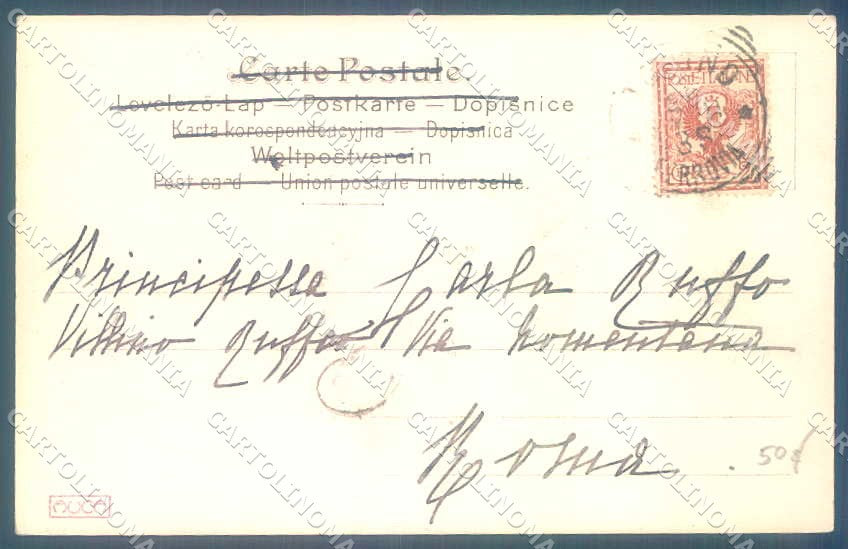 Carte Postale.
Levelező-Lap — Postkarte — Dopisnice
Karta korospondencyjna — Dopisnica
Weltpostverein
Post card — Union postale universelle.
POSTE ITALIANE
Principessa Carla Ruffo
Villino Ruffo Via Nomentana
Roma
50
CARTOLINOMANIA